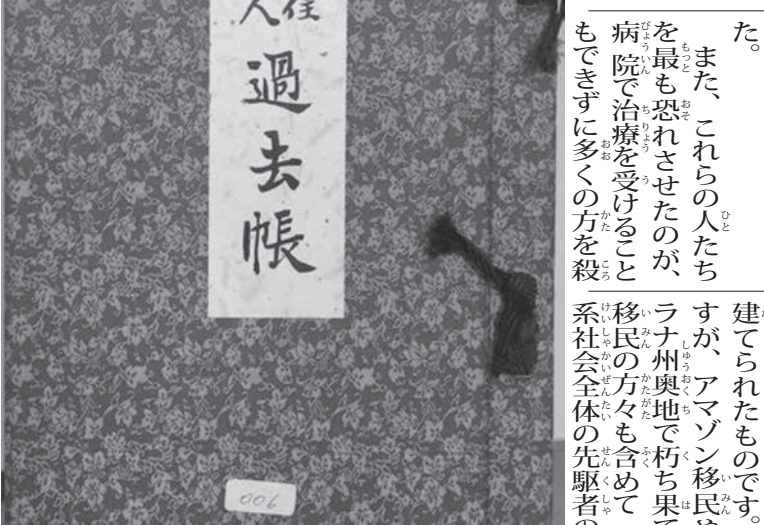 た。
また、これらの人たち
を最も恐れさせたのが、
病院で治療を受けること
もできずに多くの方を殺
建てられたものです。
すが、アマゾン移民や
ラナ州奥地で朽ち果て
移民の方々も含めて
系社会全体の先駆者の
人住
過去帳
006